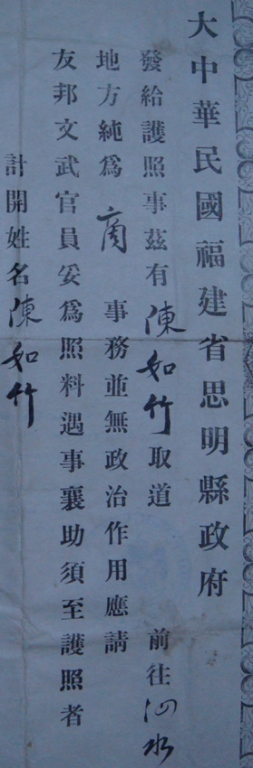 大中華民國福建省思明縣政府
發給護照事茲有陳如竹取道 前往泗水
地方純爲商 事務並無政治作用應請
友邦文武官員妥爲照料遇事襄助須至護照者
計開姓名陳如竹